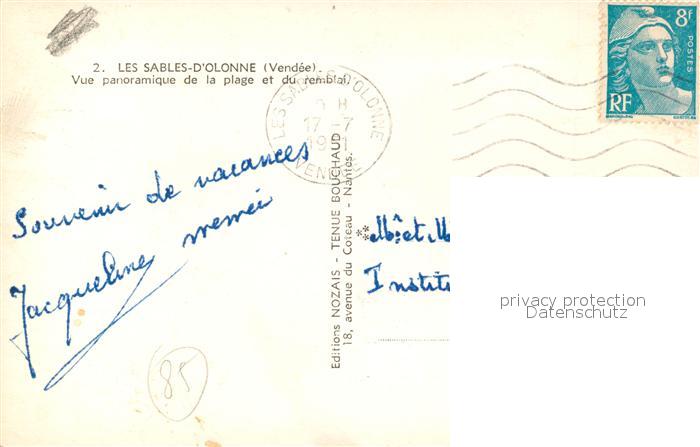 2. LES SABLES-D'OLONNE (Vendée).
Vue panoramique de la plage et du remblai.
8F
POSTES
RF
LES SABLES-D'OLONNE
17-7
VENDÉE
Souvenir de vacances
Jacqueline
Editions NOZAIS - TENUE BOUCHAUD
18, avenue du Coteau - Nantes.
Mr et M
Institu
privacy protection
Datenschutz
85